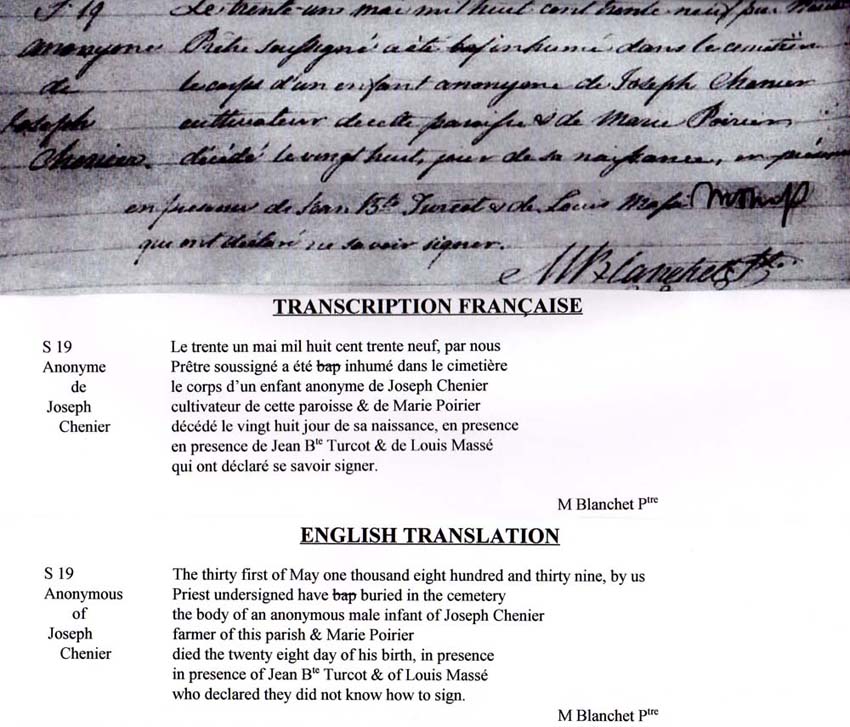 S 19 Le trente un mai mil huit cent trente neuf par nous
anonyme Prêtre soussigné a été bap inhumé dans le cimetière
de le corps d'un enfant anonyme de Joseph Chenier
Joseph cultivateur de cette paroisse & de Marie Poirier,
Chenier. décédé le vingt huit, jour de sa naissance, en présence
en presence de Jean Bte Turcot & de Louis Massé
qui ont déclaré ne savoir signer.
M Blanchet Ptre
TRANSCRIPTION FRANÇAISE
S 19 Le trente un mai mil huit cent trente neuf, par nous
Anonyme Prêtre soussigné a été bap inhumé dans le cimetière
de le corps d’un enfant anonyme de Joseph Chenier
Joseph cultivateur de cette paroisse & de Marie Poirier
Chenier décédé le vingt huit jour de sa naissance, en presence
en presence de Jean Bte Turcot & de Louis Massé
qui ont déclaré se savoir signer.
M Blanchet Ptre
ENGLISH TRANSLATION
S 19 The thirty first of May one thousand eight hundred and thirty nine, by us
Anonymous Priest undersigned have bap buried in the cemetery
of the body of an anonymous male infant of Joseph Chenier
Joseph farmer of this parish & Marie Poirier
Chenier died the twenty eight day of his birth, in presence
in presence of Jean Bte Turcot & of Louis Massé
who declared they did not know how to sign.
M Blanchet Ptre